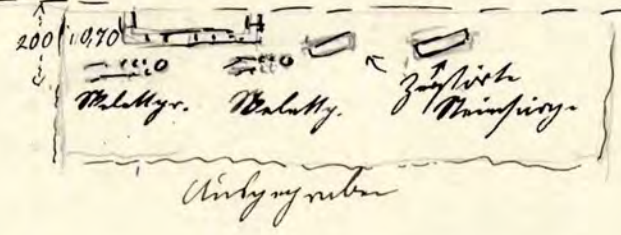 200 0,70
Skelettgr. Skelettg. Zerstörte
Steinsärge
Ausgegraben